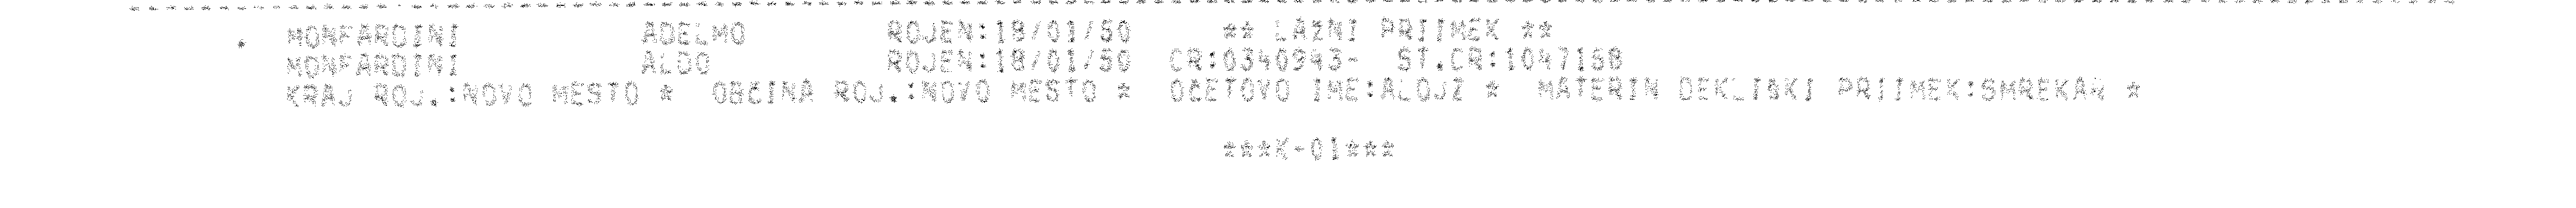 MONFARDINI ADELMO ROJEN:18/01/50 ** LAŽNI PRIIMEK **
MONFARDINI ALDO ROJEN:18/01/50 CR:0340943- ST.CR:1047158
KRAJ ROJ.:NOVO MESTO * OBČINA ROJ.:NOVO MESTO * OČETOVO IME:ALOJZ * MATERIN DEKLIŠKI PRIIMEK:SMREKAR *
***K-01***